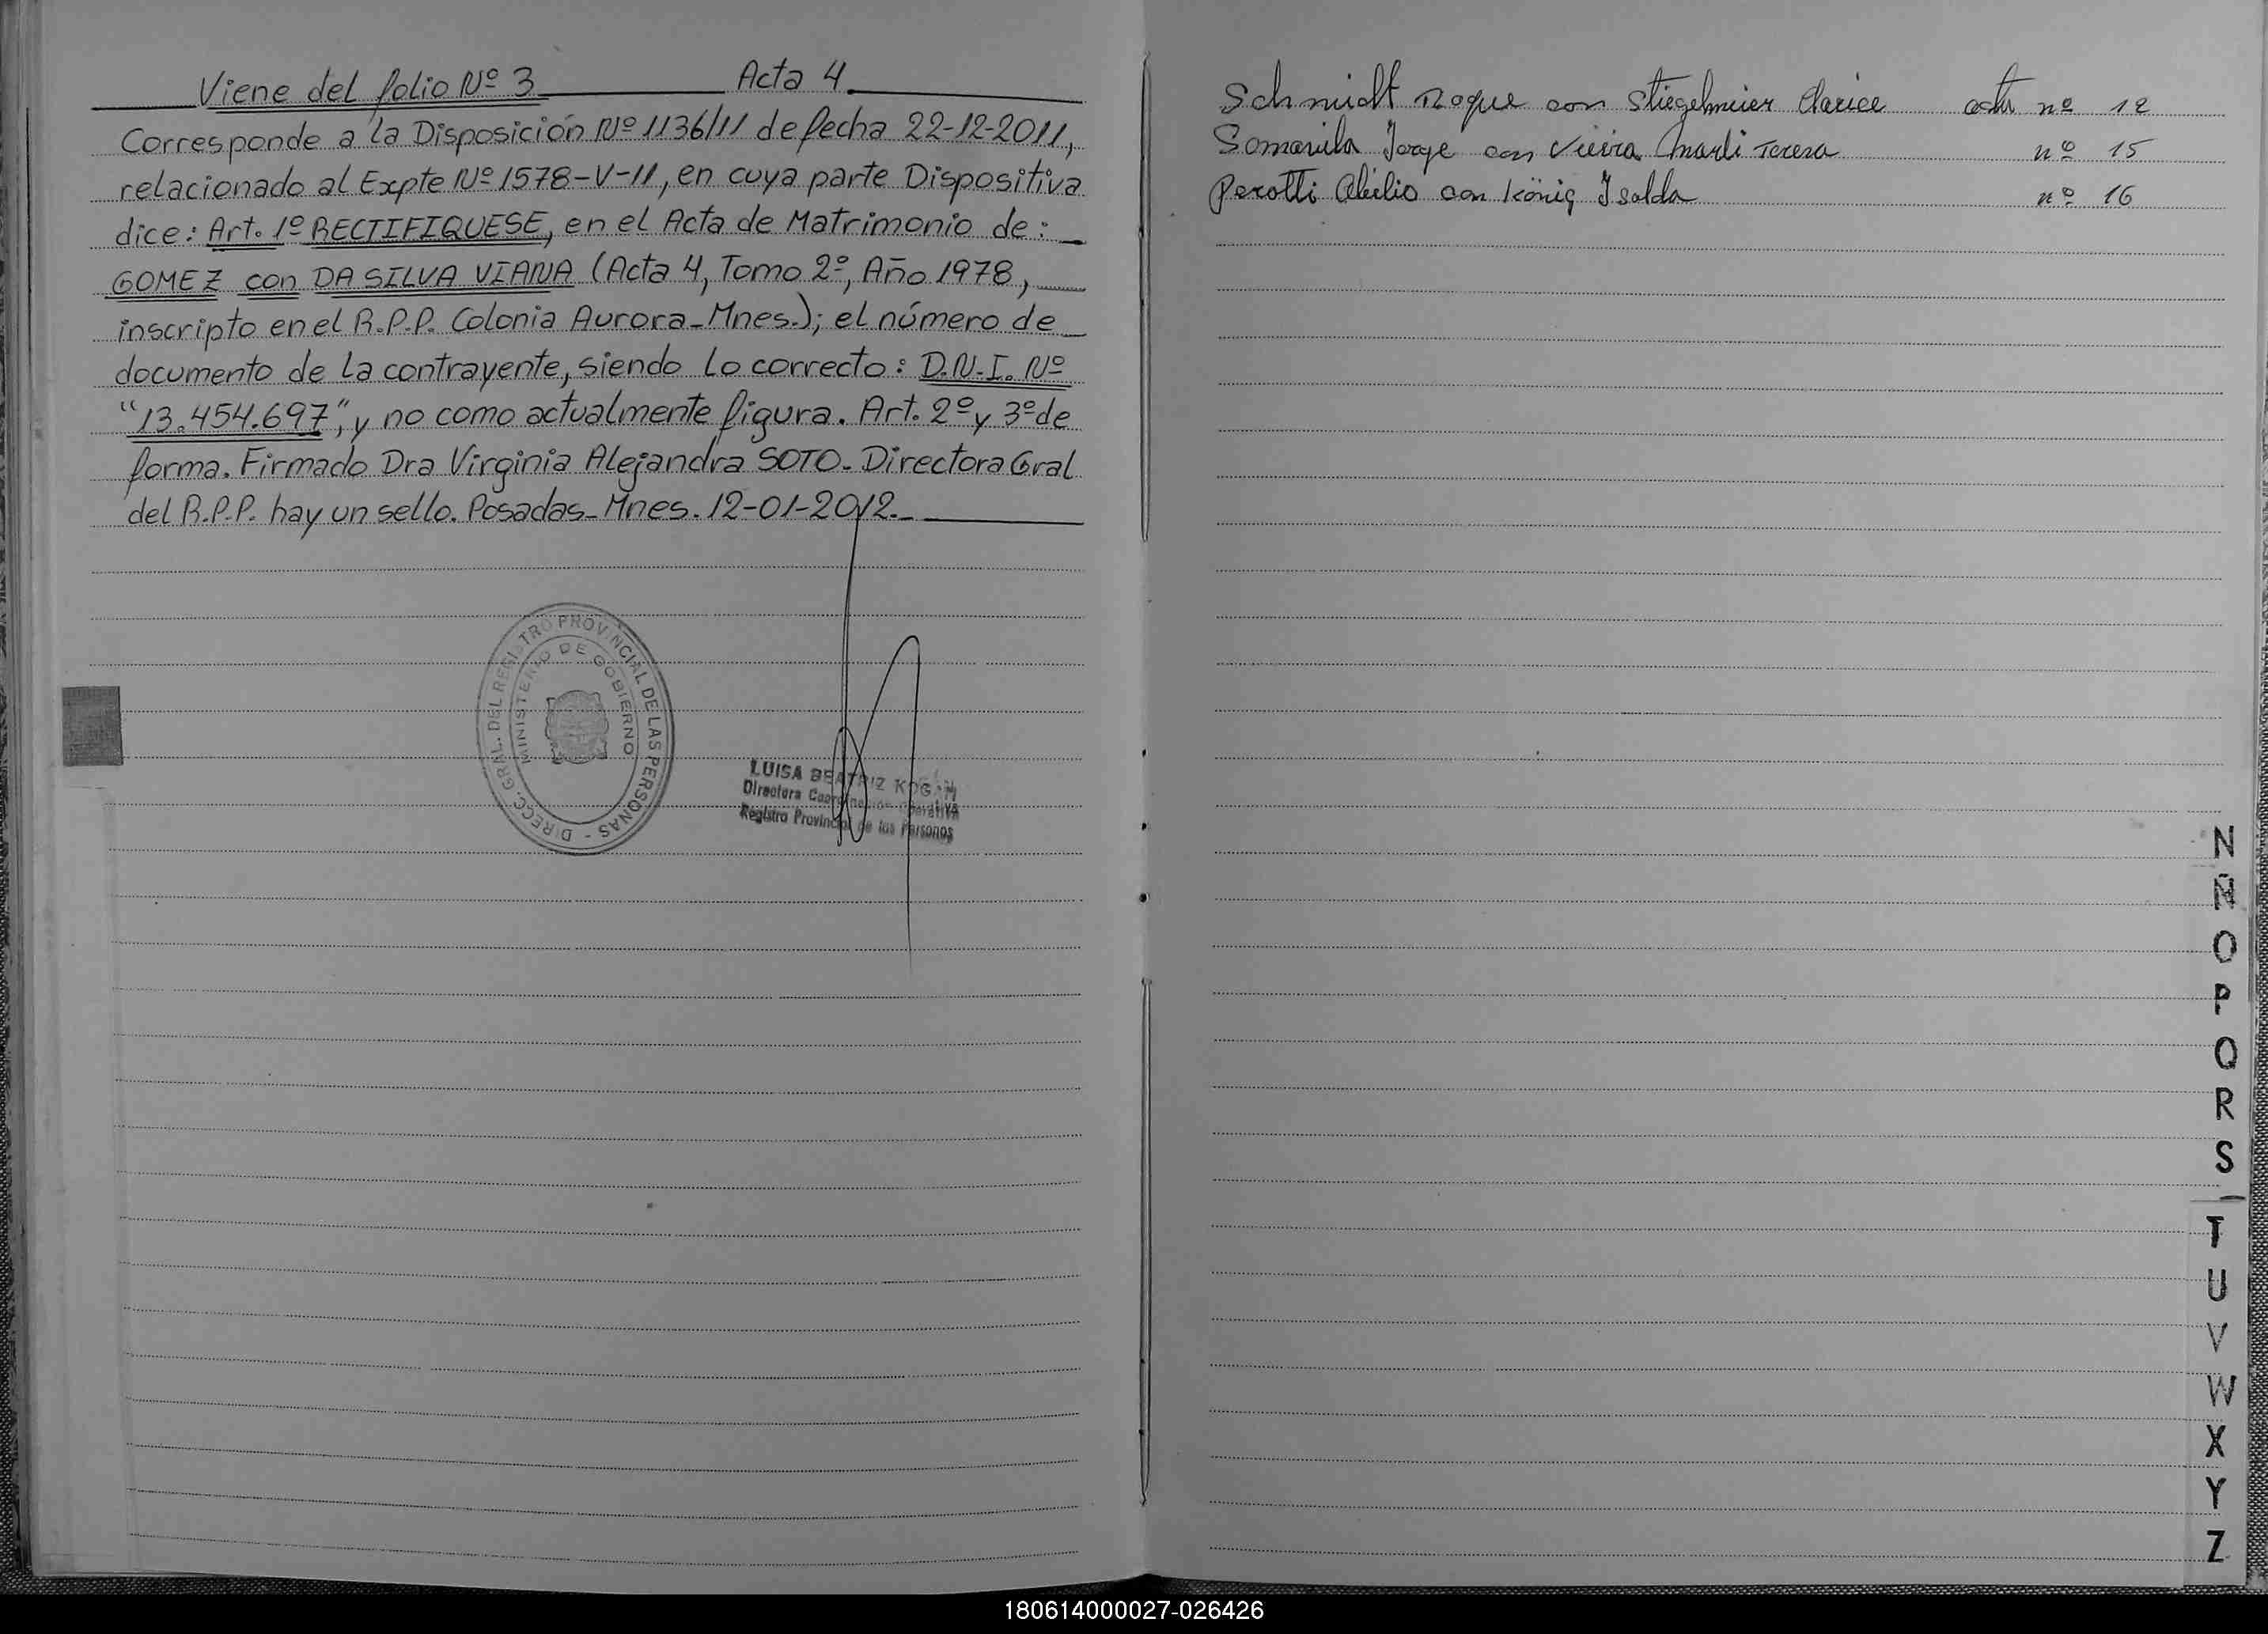 Viene del folio Nº 3 Acta 4
Corresponde a la Disposición Nº 1136/11 de fecha 22-12-2011,
relacionado al Expte Nº 1578-V-11, en cuya parte Dispositiva
dice: Art. 1º RECTIFIQUESE, en el Acta de Matrimonio de:
GOMEZ con DA SILVA VIANA (Acta 4, Tomo 2º, Año 1978,
inscripto en el R.P.P. Colonia Aurora-Mnes.); el número de
documento de la contrayente, siendo lo correcto: D.N.I. Nº
"13.454.697", y no como actualmente figura. Art. 2º y 3º de
forma. Firmado Dra Virginia Alejandra SOTO. Directora Gral
del R.P.P. hay un sello. Posadas-Mnes. 12-01-2012.-
DIRECC. GRAL. DEL REGISTRO PROVINCIAL DE LAS PERSONAS -
MINISTERIO DE GOBIERNO
LUISA BEATRIZ KOGAN
Directora Coordinación Operativa
Registro Provincial de las Personas
Schmidt Roque con Stiegelmeier Clarice acta nº 12
Somavila Jorge con Vieira Marli Teresa nº 15
Perotti Abilio con König Isolda nº 16
N
Ñ
O
P
Q
R
S
T
U
V
W
X
Y
Z
180614000027-026426